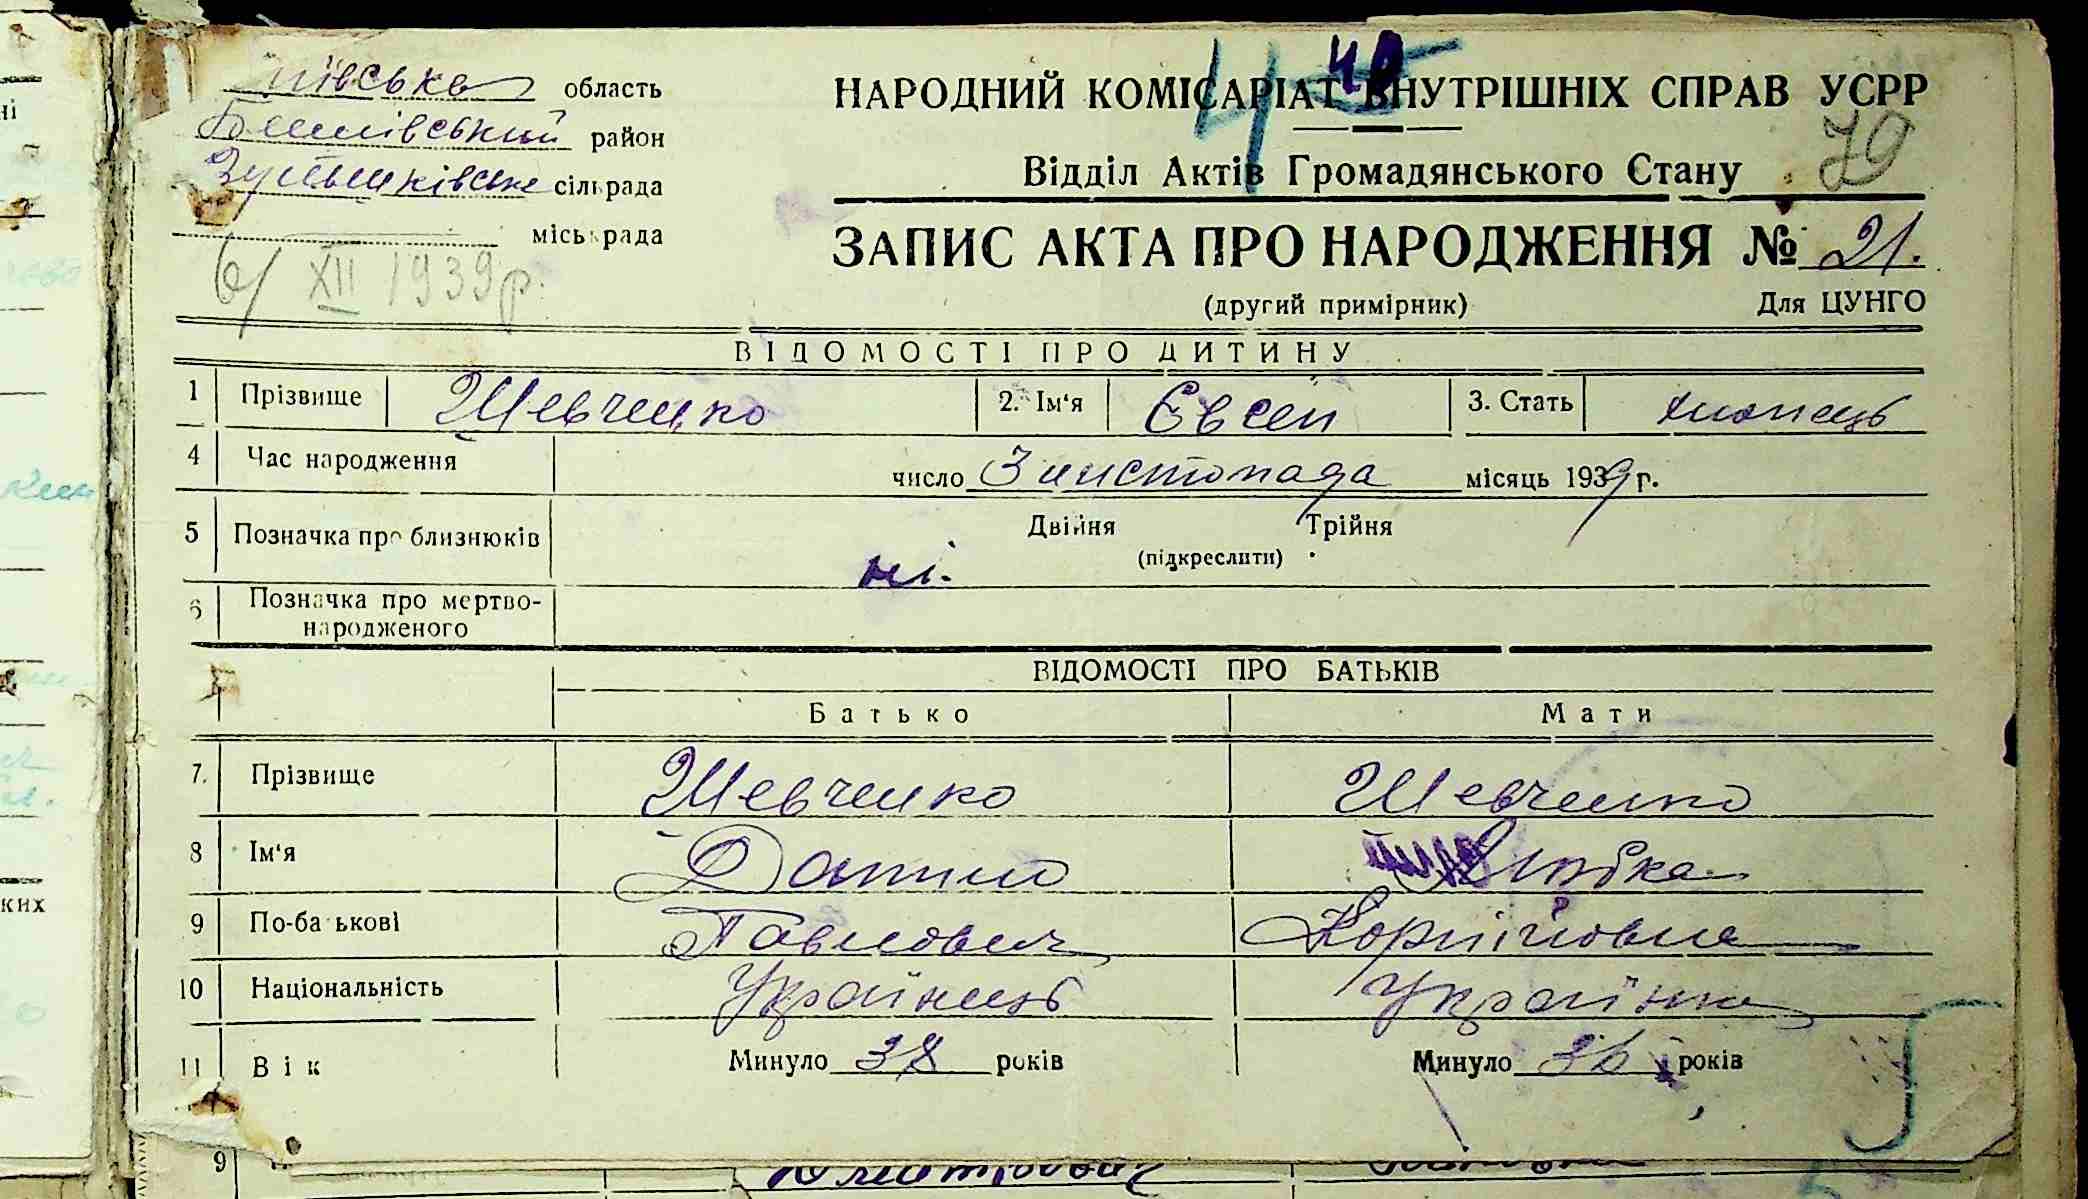 Київська область
район
сільрада
міськрада
6/XII 1939 р.
НАРОДНИЙ КОМІСАРІАТ ВНУТРІШНІХ СПРАВ УСРР
48
79
Відділ Актів Громадянського Стану
ЗАПИС АКТА ПРО НАРОДЖЕННЯ № 21.
(другий примірник) Для ЦУНГО
ВІДОМОСТІ ПРО ДИТИНУ
1 Прізвище Шевченко 2. Ім'я Євсей 3. Стать хлопець
4 Час народження число 3 листопада місяць 1939 р.
5 Позначка про близнюків ні. Двійня Трійня
(підкреслити)
6 Позначка про мертво-
народженого
ВІДОМОСТІ ПРО БАТЬКІВ
Батько Мати
7. Прізвище Шевченко Шевченко
8 Ім'я Данило
9 По-батькові Павлович Корніївна
10 Національність Українець Українка
11 Вік Минуло 38 років Минуло 36 років
ких
9